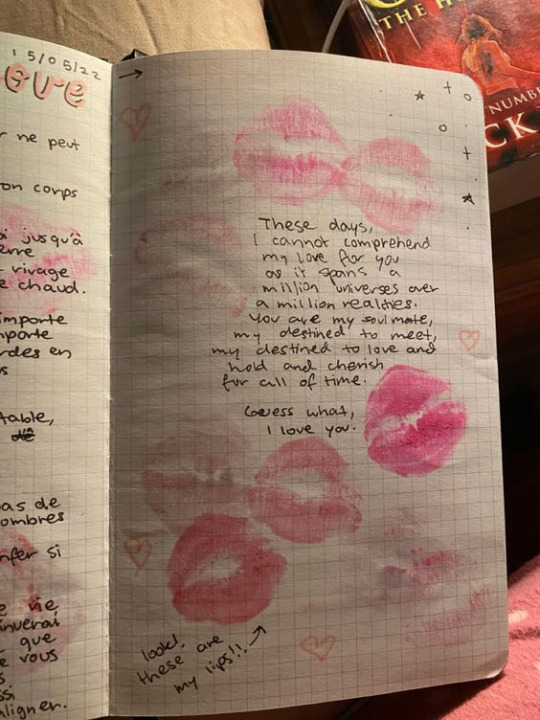 15/05/22
ne peut
corps
jusqu'à
rivage
chaud.
importe
en
table,
pas de
ombres
si
vie
que
vous
These days,
I cannot comprehend
my love for you
as it spans a
million universes over
a million realities.
You are my soulmate,
my destined to meet,
my destined to love and
hold and cherish
for all of time.
Guess what,
I love you.
look!
these are
my lips!!
THE